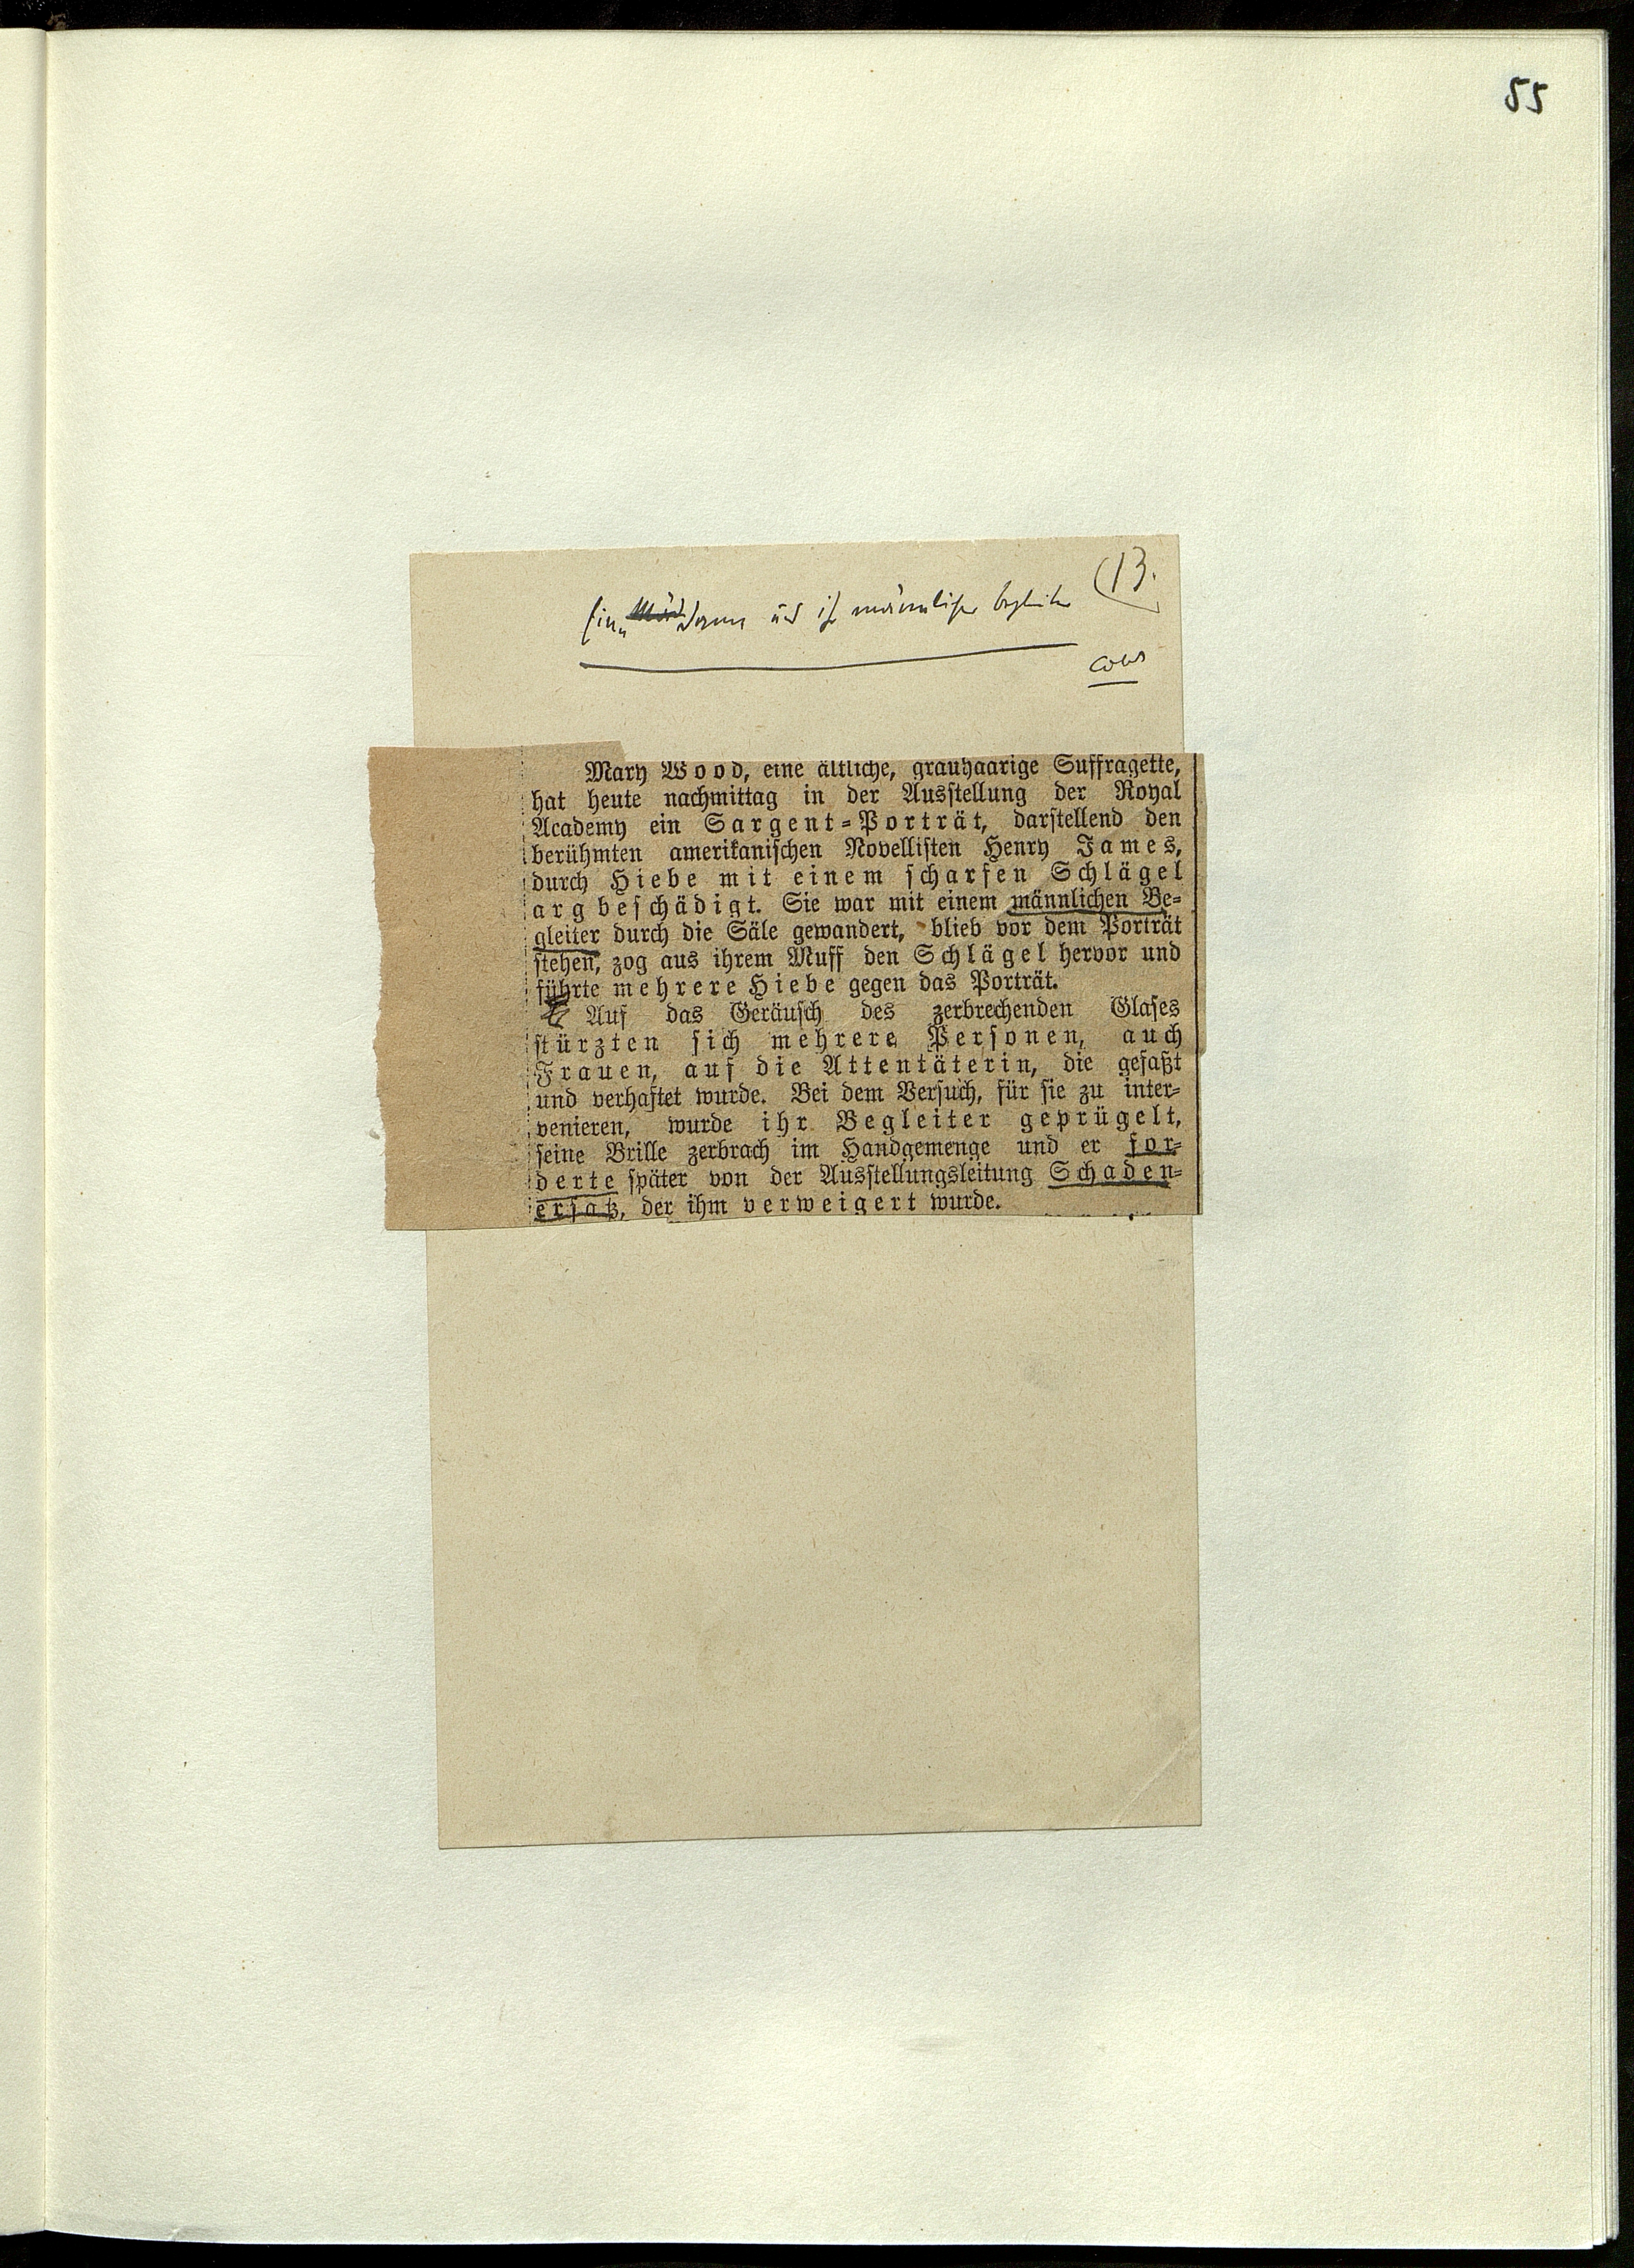 55
(13.
Eine Dame und ihr männlicher Begleiter
Mary Wood, eine ältliche, grauhaarige Suffragette,
hat heute nachmittag in der Ausstellung der Royal
Academy ein Sargent-Porträt, darstellend den
berühmten amerikanischen Novellisten Henry James,
durch Hiebe mit einem scharfen Schlägel
arg beschädigt. Sie war mit einem männlichen Be-
gleiter durch die Säle gewandert, blieb vor dem Porträt
stehen, zog aus ihrem Muff den Schlägel hervor und
führte mehrere Hiebe gegen das Porträt.
Auf das Geräusch des zerbrechenden Glases
stürzten sich mehrere Personen, auch
Frauen, auf die Attentäterin, die gefaßt
und verhaftet wurde. Bei dem Versuch, für sie zu inter-
venieren, wurde ihr Begleiter geprügelt,
seine Brille zerbrach im Handgemenge und er for-
derte später von der Ausstellungsleitung Schaden-
ersatz, der ihm verweigert wurde.